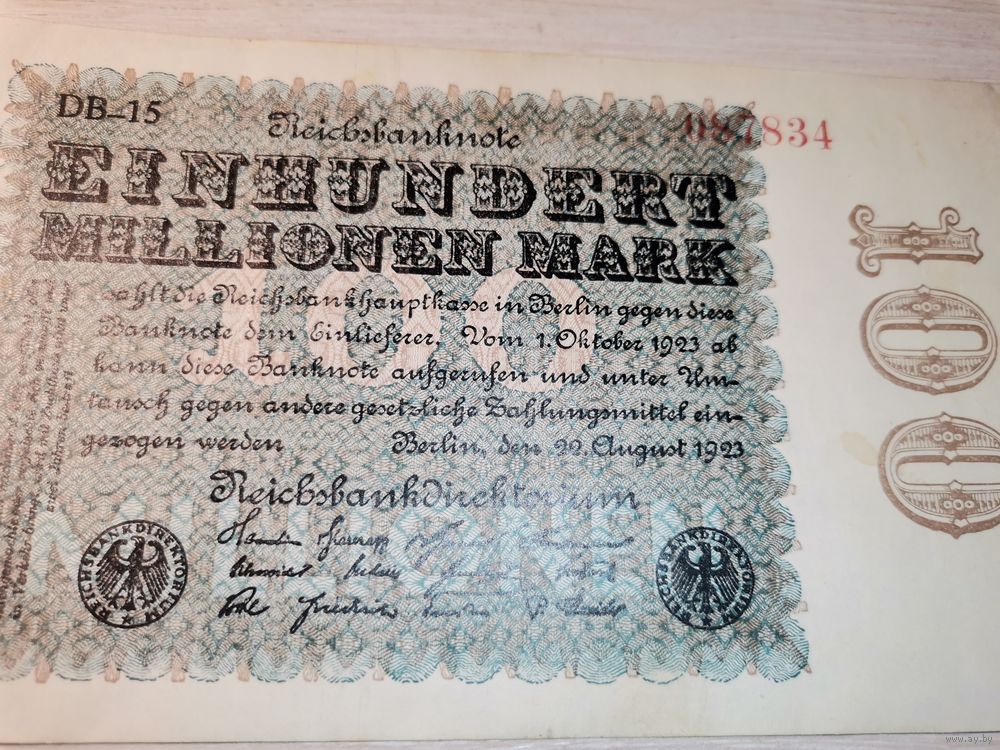 DB-15
Reichsbanknote
087834
EINHUNDERT
MILLIONEN MARK
100
zahlt die Reichsbankhauptkasse in Berlin gegen diese
Banknote dem Einlieferer. Vom 1. Oktober 1923 ab
kann diese Banknote aufgerufen und unter Um-
tausch gegen andere gesetzliche Zahlungsmittel ein-
gezogen werden
Berlin, den 22. August 1923
Reichsbankdirektorium
REICHSBANKDIREKTORIUM
REICHSBANKDIREKTORIUM
100
www.ay.by